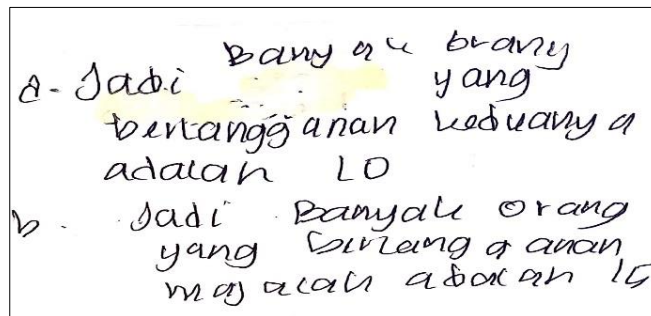 Banyak orang
a. Jadi yang
bertangganan keduanya
adalah 10
b. Jadi Banyak orang
yang bertangganan
majalah adalah 15